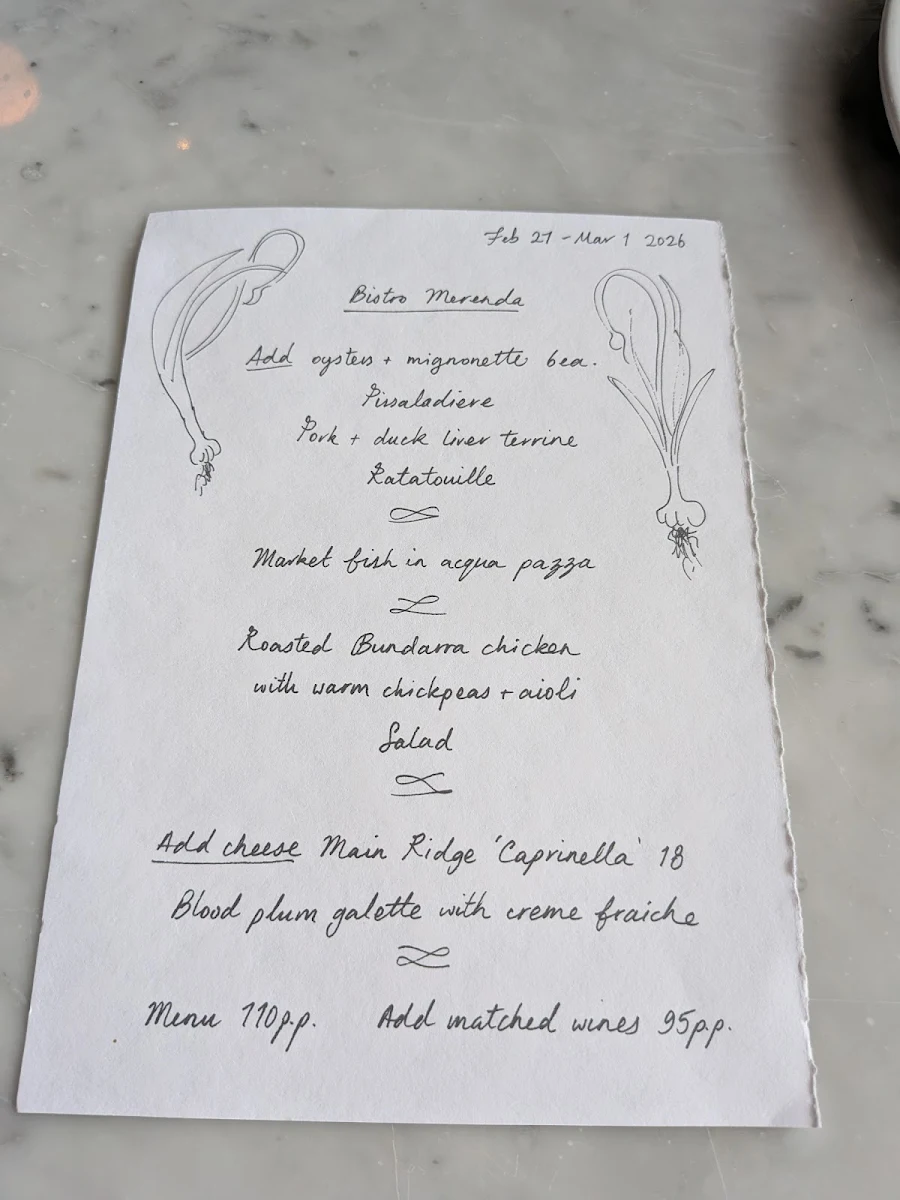 Feb 27 - Mar 1 2026
Bistro Merenda
Add oysters + mignonette 6ea.
Pissaladiere
Pork + duck liver terrine
Ratatouille
Market fish in acqua pazza
Roasted Bundarra chicken
with warm chickpeas + aioli
Salad
Add cheese Main Ridge 'Caprinella' 18
Blood plum galette with creme fraiche
Menu 110p.p. Add matched wines 95p.p.